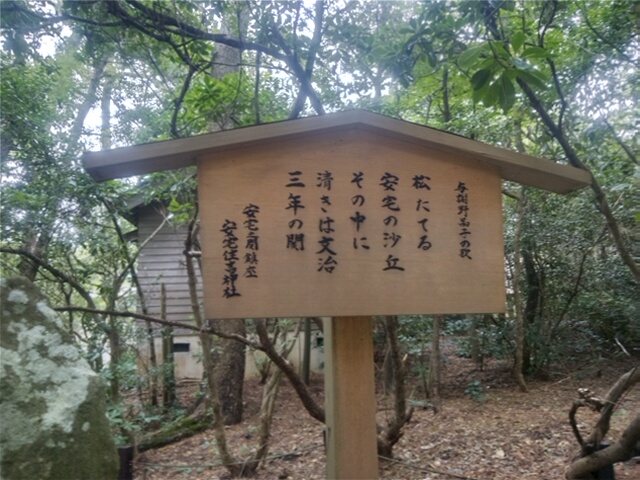 与謝野晶子の歌
松たてる
安宅の沙丘
その中に
清きは文治
三年の関
安宅の関鎮座
安宅住吉神社